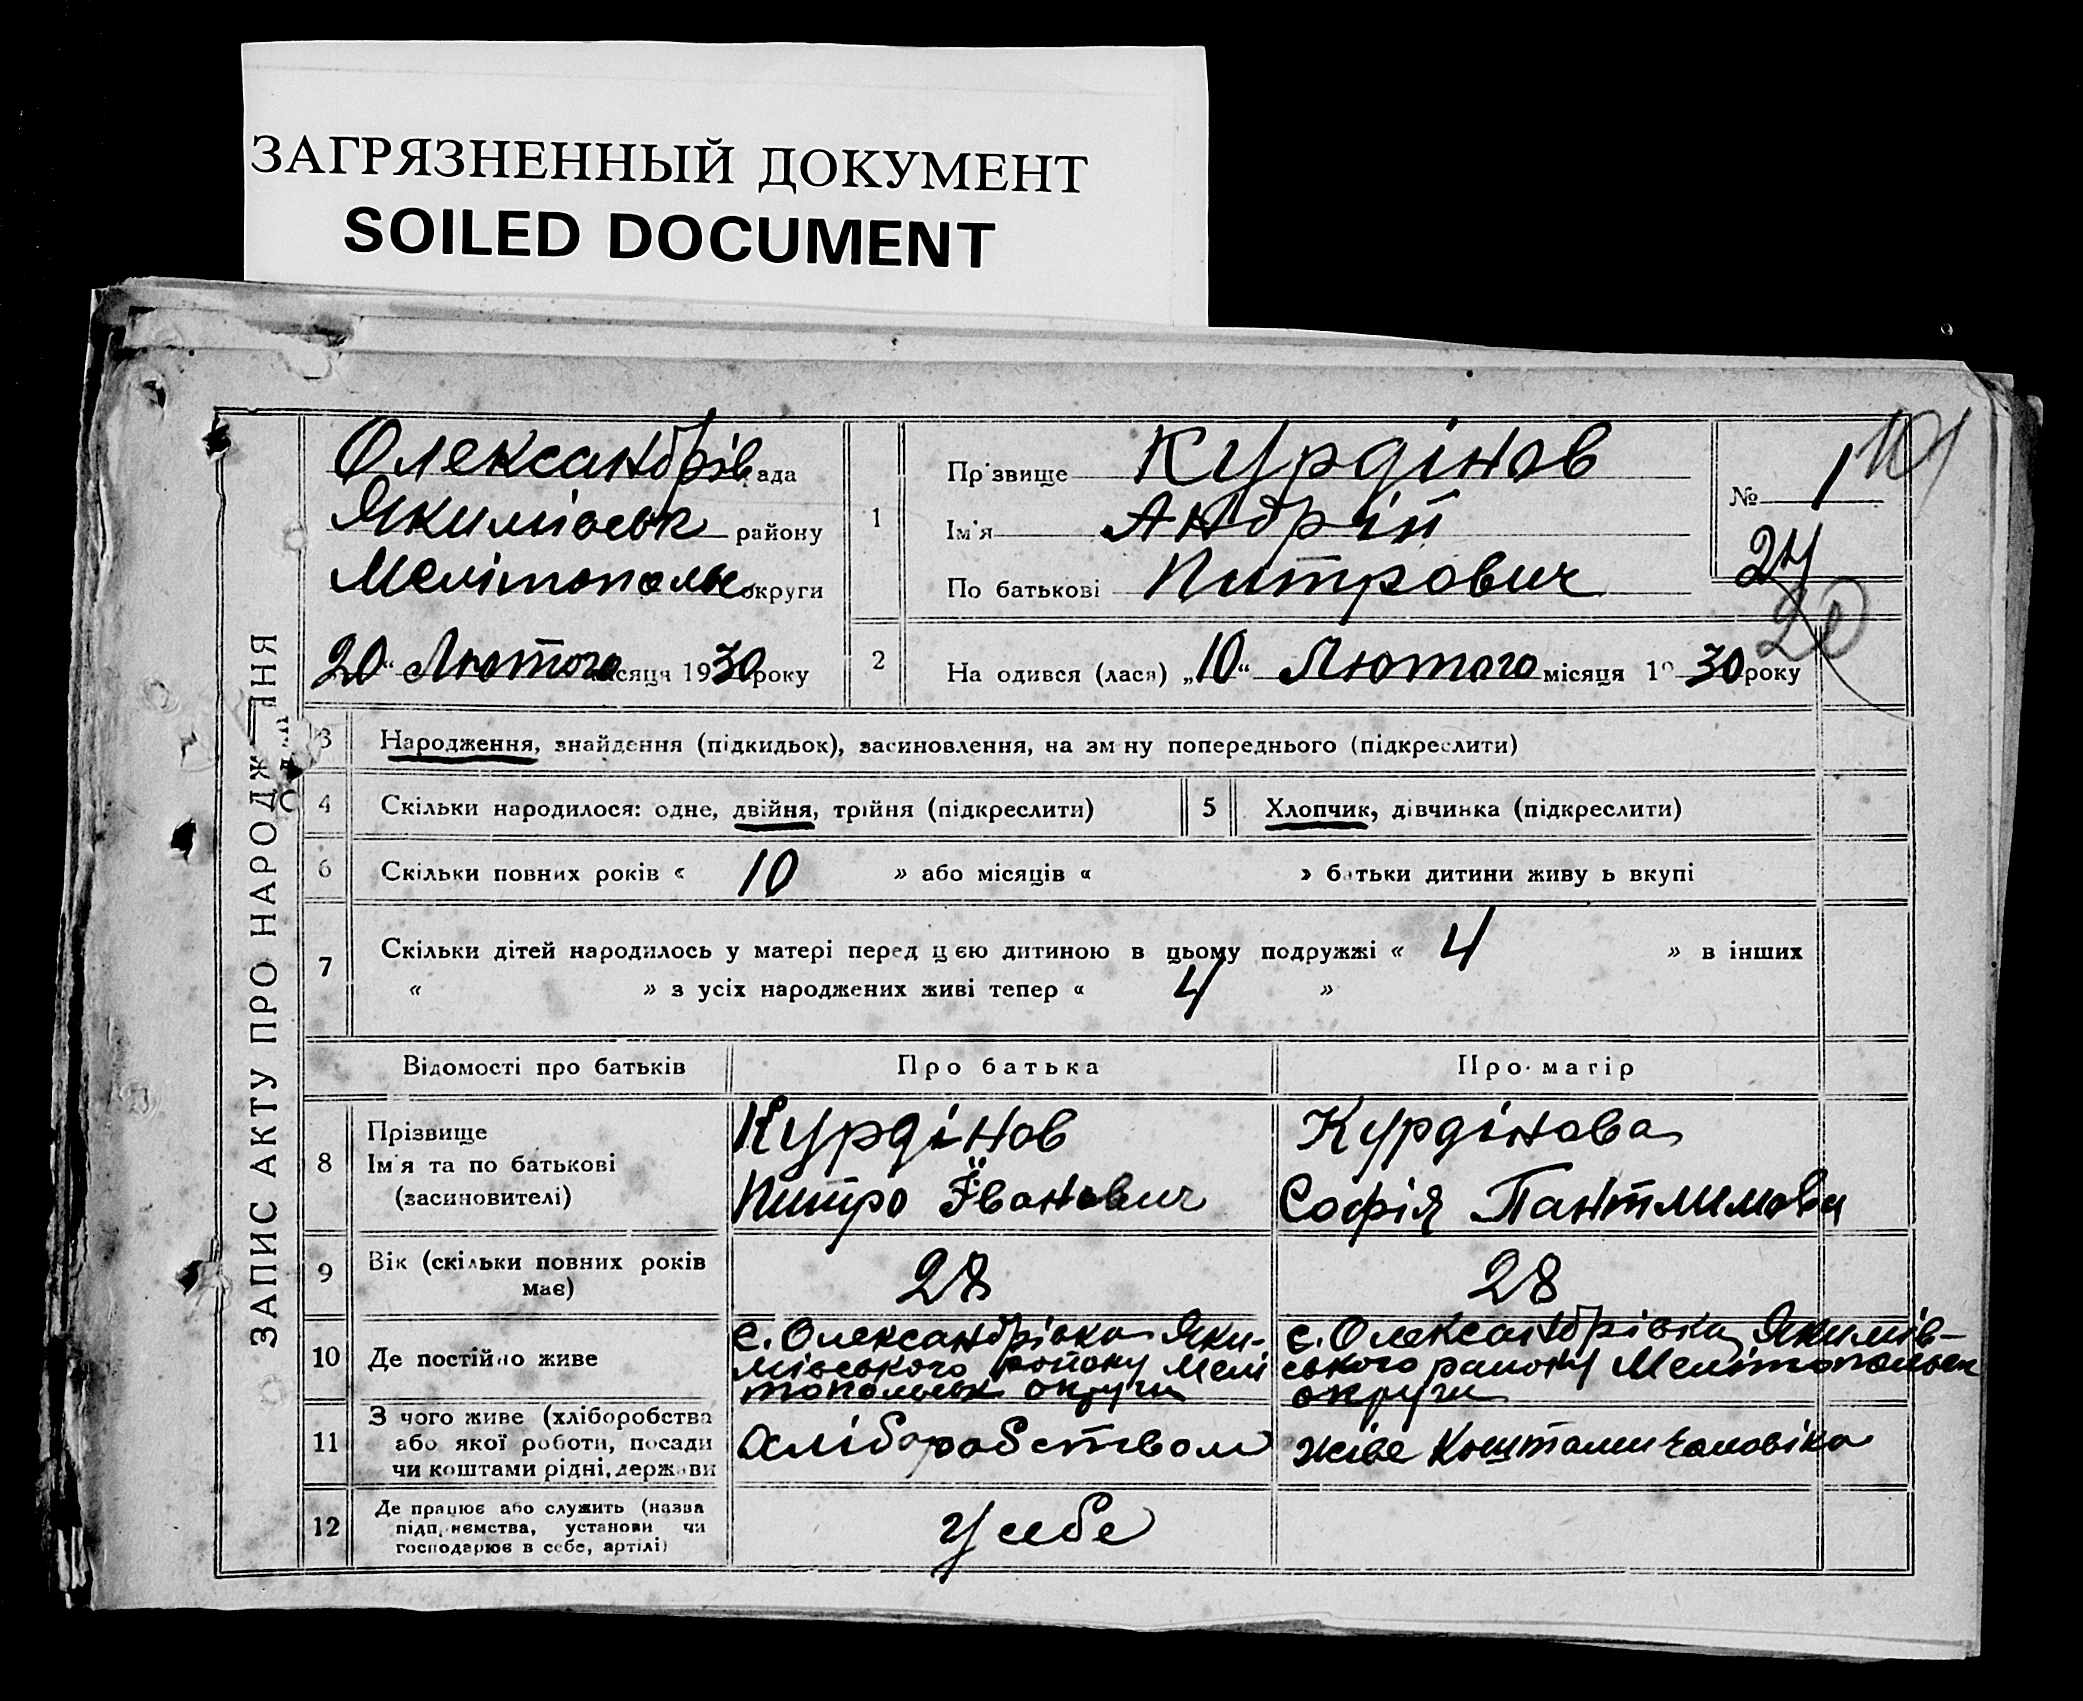 ЗАГРЯЗНЕННЫЙ ДОКУМЕНТ
SOILED DOCUMENT
ЗАПИС АКТУ ПРО НАРОДЖ ННЯ
Олександрів ада
Якимівськ району
Мелітопольс округи
20 “ Лютого сяця 1930 року
1
Пр звище Курдінов
Ім'я Андрій
По батькові Питрович
№ 1
101
24
20
2
На одився (лася) „10“ Лютого місяця 19 30 року
3 Народження, знайдення (підкидьок), засиновлення, на зм ну попереднього (підкреслити)
4 Скільки народилося: одне, двійня, трійня (підкреслити) 5 Хлопчик, дівчинка (підкреслити)
6 Скільки повних років « 10 » або місяців « » батьки дитини живу ь вкупі
7 Скільки дітей народилось у матері перед цєю дитиною в цьому подружжі « 4 » в інших
« » з усіх народжених живі тепер « 4 »
Відомості про батьків Про батька Про матір
8 Прізвище
Ім'я та по батькові
(засиновителі)
Курдінов
Питро Їванович
Курдінова
Софія Пантлимова
9 Вік (скільки повних років
має)
28
28
10 Де постійно живе
с. Олександрівка Яки-
мівського району Мелі
топольськ округи
с. Олександрівка Якимів-
ського району Мелітопольськ
округи
11 З чого живе (хліборобства
або якої роботи, посади
чи коштами рідні, держави
Хліборобством
живе Коштами чоловіка
12 Де працює або служить (назва
підп иємства, установи чи
господарює в себе, артілі)
У себе